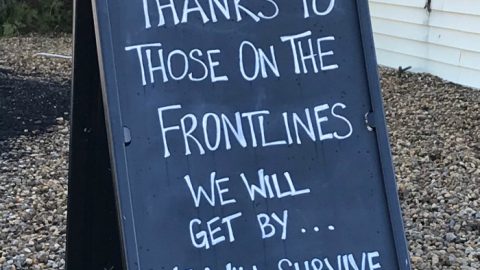 THANKS TO
THOSE ON THE
FRONTLINES
WE WILL
GET BY...
WILL SURVIVE